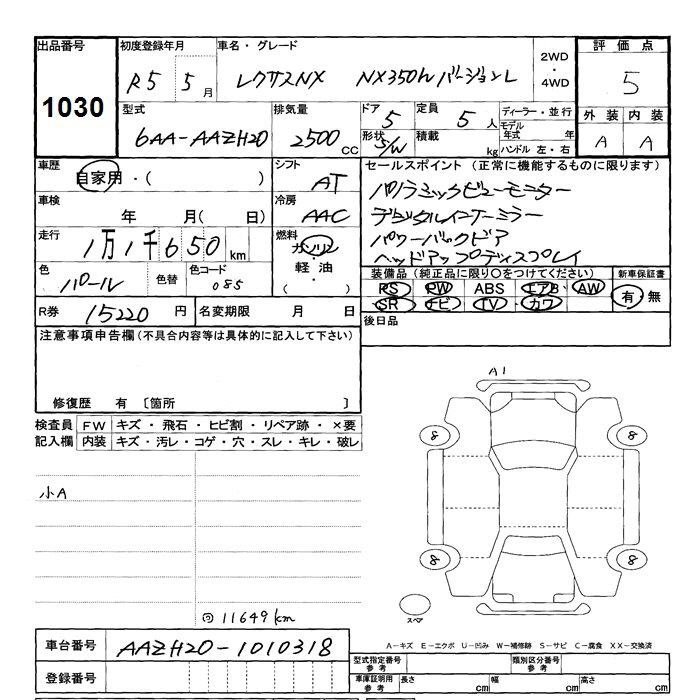 出品番号 初度登録年月 車名・グレード 2WD・4WD 評価点
1030 R5 5月 レクサスNX NX350h バージョンL 5
型式 排気量 ドア 定員 ディーラー・並行 外装 内装
6AA-AAZH20 2500cc 5 5人 モデル年式 年 A A
形状 S/W 積載 kg ハンドル 左・右
車歴 自家用・( ) シフト AT セールスポイント (正常に機能するものに限ります)
車検 年 月( 日) 冷房 AAC パノラミックビューモニター
デジタルインナーミラー
走行 1万1千650km 燃料 ガソリン・軽油・( ) パワーバックドア
ヘッドアップディスプレイ
色 パール 色替 色コード 085 装備品 (純正品に限り○をつけてください) 新車保証書
PS PW ABS エアB AW 有・無
SR ナビ TV カワ
R券 15220円 名変期限 月 日 後日品
注意事項申告欄 (不具合内容等は具体的に記入して下さい)
修復歴 有 〔箇所 〕
検査員 FW キズ・飛石・ヒビ割・リペア跡・×要
記入欄 内装 キズ・汚レ・コゲ・穴・スレ・キレ・破レ
A1
8 8
小A
8 8
スペア
11649km
A-キズ E-エクボ U-凹み W-補修跡 S-サビ C-腐食 XX-交換済
車台番号 AAZH20-1010318 型式指定番号 参考 類別区分番号 参考
登録番号 車庫証明用 参考 長さ cm 幅 cm 高さ cm